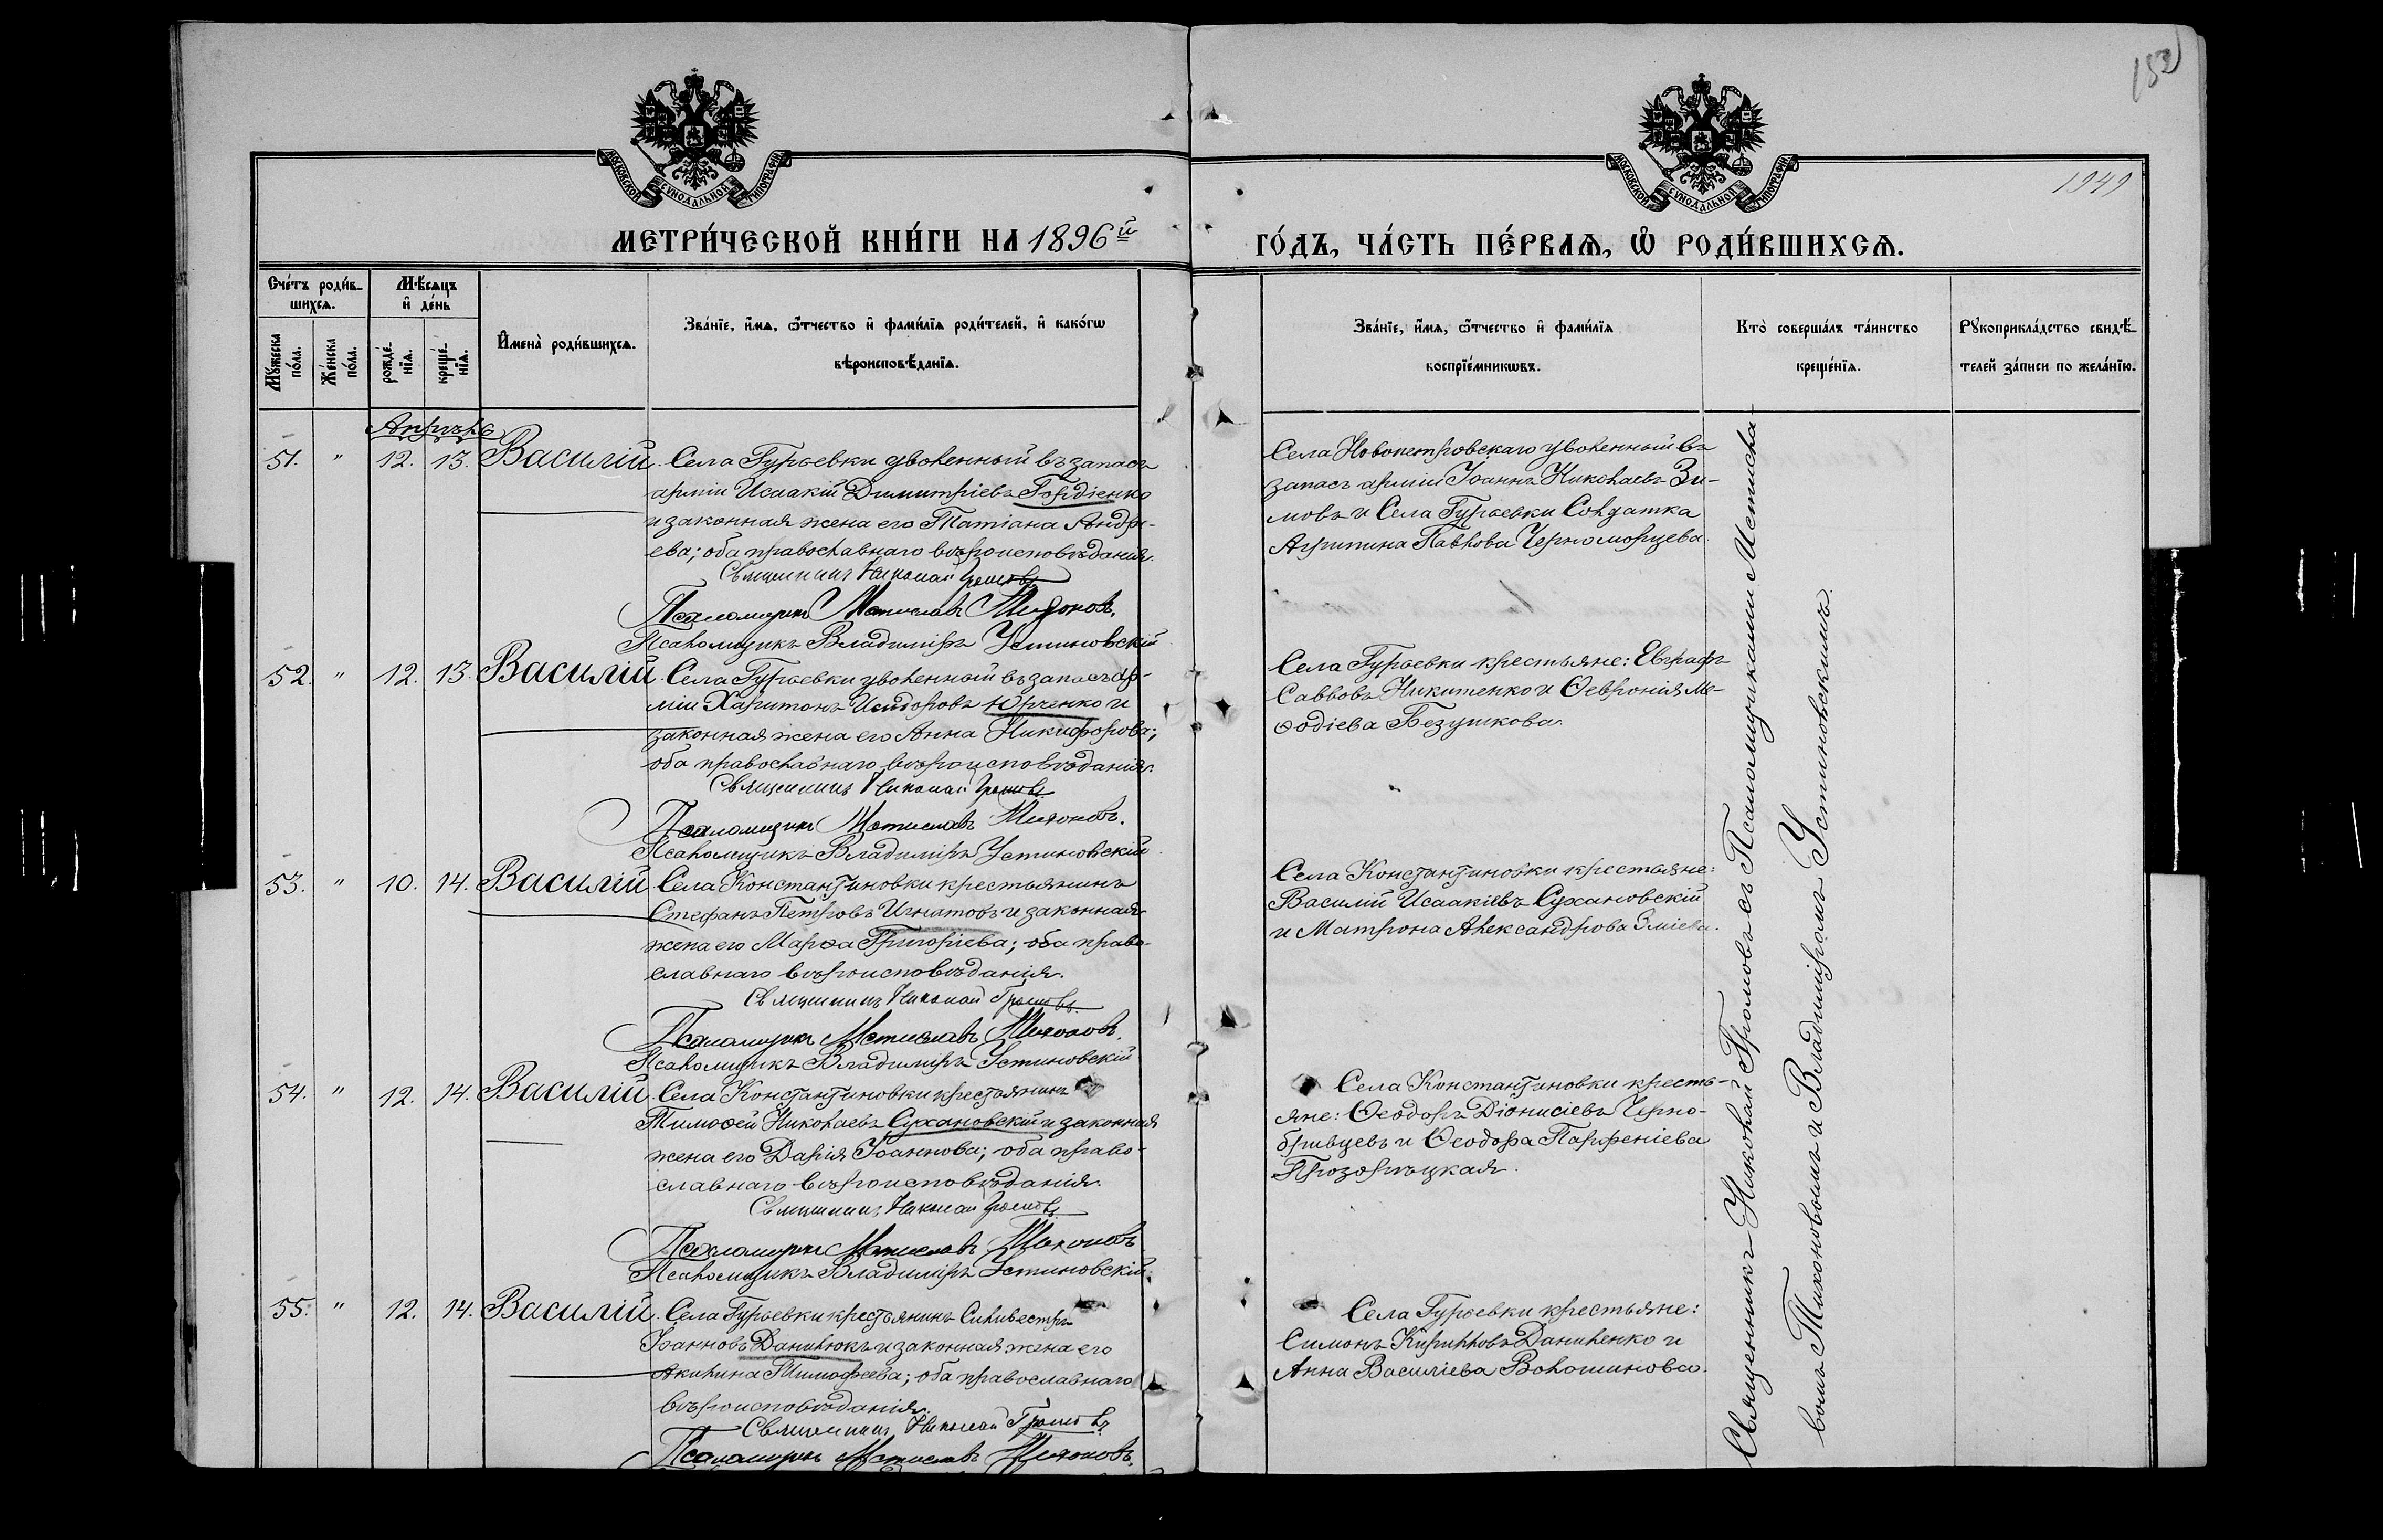 152
МОСКОВСКОЙ СУНОДАЛЬНОЙ ТИПОГРАФІИ
МОСКОВСКОЙ СУНОДАЛЬНОЙ ТИПОГРАФІИ
1949
МЕТРИ́ЧЕСКОЙ КНИ́ГИ НА 1896й
ГО́ДЪ, ЧА́СТЬ ПЕ́РВАѦ, Ѡ҆ РОДИ́ВШИХСѦ.
Сче́тъ роди́в-
шихсѧ.
Мѣ́сѧцъ
и҆ де́нь
Мꙋ́жеска по́ла.
Же́нска по́ла.
рожде́-нїѧ.
креще́-нїѧ.
И҆мена̀ роди́вшихсѧ.
Зва́нїе, и҆́мѧ, ѻ҆́тчество и҆ фами́лїѧ роди́телей, и҆ како́гѡ
вѣроисповѣ́данїѧ.
Зва́нїе, и҆́мѧ, ѻ҆́тчество и҆ фами́лїѧ
воспрїе́мникѡвъ.
Кто̀ соверша́лъ та́инство
креще́нїѧ.
Рꙋкоприкла́дство свидѣ́-
телей за́писи по жела́нїю.
Апрѣль
51. " 12. 13. Василій. Села Гурьевки уволенный въ запасъ
арміи Исаакій Димитріевъ Гордіенко
и законная жена его Татіана Андре-
ева; оба православнаго вѣроисповѣданія.
Священникъ Николай Громовъ
Псаломщикъ Мстиславъ Тихоновъ.
Псаломщикъ Владиміръ Устиновскій
Села Новопетровскаго уволенный въ
запасъ арміи Іоаннъ Николаевъ Зи-
мовъ и Села Гурьевки Солдатка
Агрипина Павлова Черноморцева.
52. " 12. 13. Василій. Села Гурьевки уволенный въ запасъ ар-
міи Харитонъ Исидоровъ Юрченко и
законная жена его Анна Никифорова;
оба православнаго вѣроисповѣданія.
Священникъ Николай Громовъ
Псаломщикъ Мстиславъ Тихоновъ.
Псаломщикъ Владиміръ Устиновскій
Села Гурьевки крестьяне: Евграфъ
Саввовъ Никитенко и Ѳевронія Ме-
ѳодіева Безушкова.
53. " 10. 14. Василій. Села Константиновки крестьянинъ
Стефанъ Петровъ Игнатовъ и законная
жена его Марѳа Григоріева; оба право-
славнаго вѣроисповѣданія.
Священникъ Николай Громовъ
Псаломщикъ Мстиславъ Тихоновъ.
Псаломщикъ Владиміръ Устиновскій
Села Константиновки крестьяне:
Василій Исаакіевъ Сухановскій
и Матрона Александрова Зміева.
54. " 12. 14. Василій. Села Константиновки крестьянинъ
Тимоѳей Николаевъ Сухановскій и законная
жена его Дарія Іоаннова; оба право-
славнаго вѣроисповѣданія.
Священникъ Николай Громовъ
Псаломщикъ Мстиславъ Тихоновъ
Псаломщикъ Владиміръ Устиновскій.
Села Константиновки кресть-
яне: Ѳеодоръ Діонисіевъ Черно-
бривцевъ и Ѳеодора Парфеніева
Прозорѣцкая.
55. " 12. 14. Василій. Села Гурьевки крестьянинъ Сильвестръ
Іоанновъ Данилюкъ и законная жена его
Акилина Тимофеева; оба православнаго
вѣроисповѣданія.
Священникъ Николай Громовъ
Псаломщикъ Мстиславъ Тихоновъ.
Села Гурьевки крестьяне:
Симонъ Кирилловъ Даниленко и
Анна Василіева Волошинова.
Священникъ Николай Громовъ съ Псаломщиками Мстисла-
вомъ Тихоновымъ и Владиміромъ Устиновскимъ.